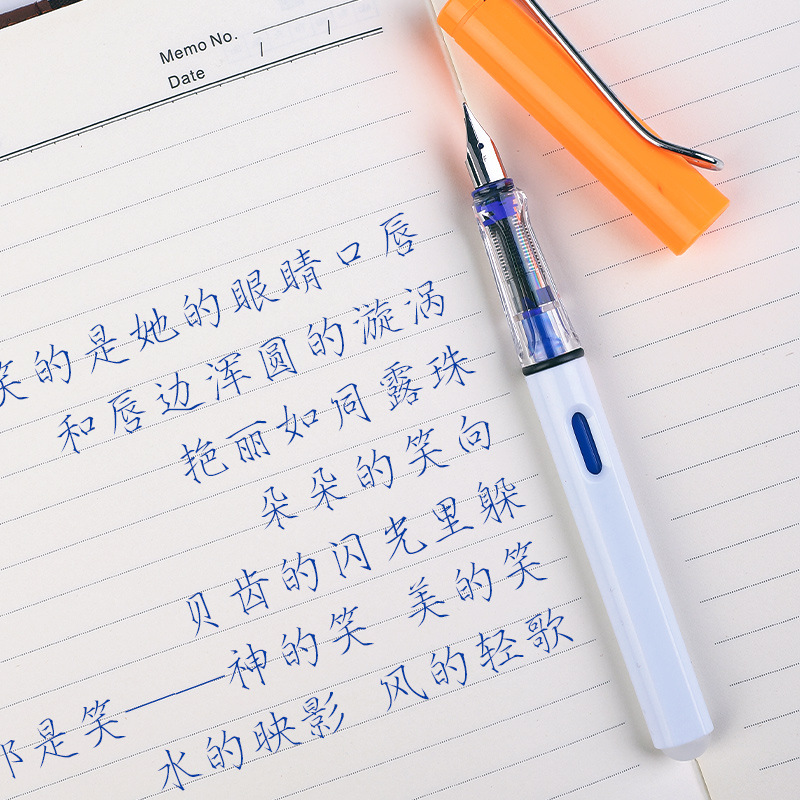 Memo No. / /
Date
笑的是她的眼睛口唇
和唇边浑圆的漩涡
艳丽如同露珠
朵朵的笑向
贝齿的闪光里躲
那是笑——神的笑 美的笑
水的映影 风的轻歌